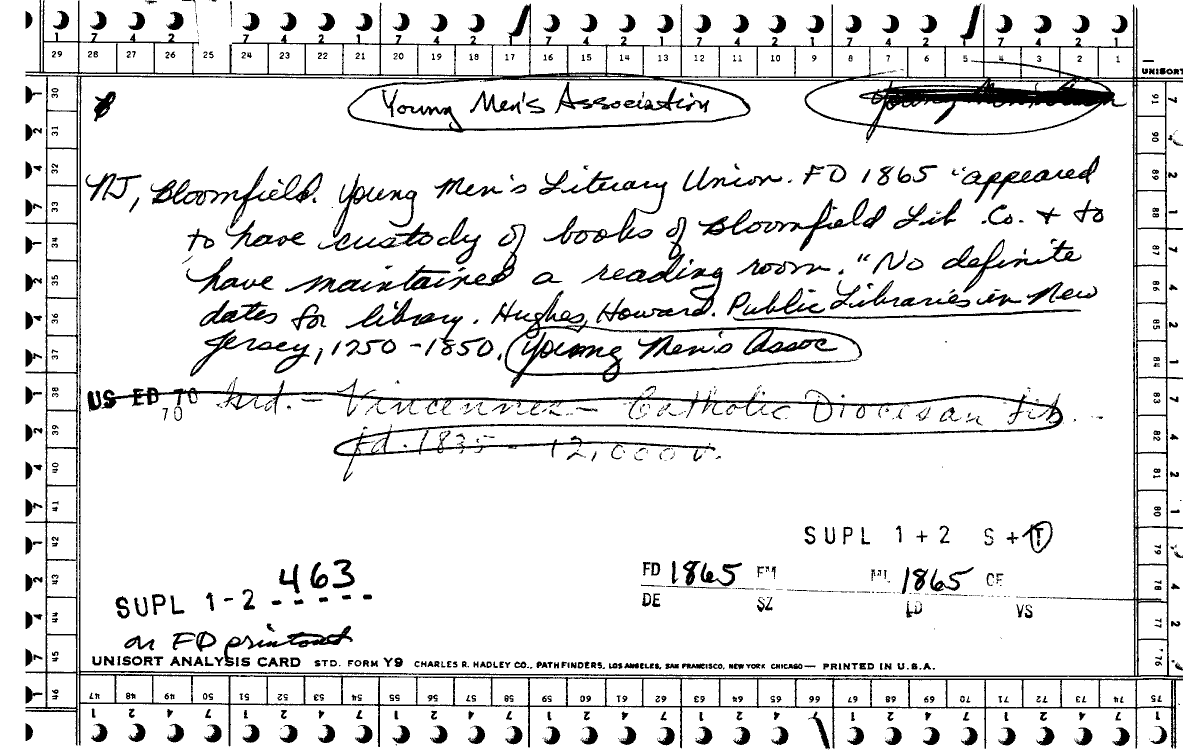 1 7 4 2 7 4 2 1 7 4 2 1 7 4 2 1 7 4 2 1 7 4 2 1
29 28 27 26 25 24 23 22 21 20 19 18 17 16 15 14 13 12 11 10 9 8 7 6 5 4 3 2 1
UNISORT
Young Men's Association
NJ, Bloomfield. Young Men's Literary Union. FD 1865 "appeared
to have custody of books of Bloomfield Lib. Co. & to
have maintained a reading room." No definite
dates for library. Hughes, Howard. Public Libraries in New
Jersey, 1750-1850. Young Men's Assoc
US ED 70 Ind. - Vincennes - Catholic Diocesan Lib.
70
fd. 1835 - 12,000 v.
SUPL 1 + 2 S + T
463
FD 1865 FM ML 1865 CE
SUPL 1-2 -----
DE SZ LD VS
on FD printout
UNISORT ANALYSIS CARD STD. FORM Y9 CHARLES R. HADLEY CO., PATHFINDERS, LOS ANGELES, SAN FRANCISCO, NEW YORK CHICAGO — PRINTED IN U.S.A.
30 31 32 33 34 35 36 37 38 39 40 41 42 43 44 45 46
91 90 89 88 87 86 85 84 83 82 81 80 79 78 77 76 75
47 48 49 50 51 52 53 54 55 56 57 58 59 60 61 62 63 64 65 66 67 68 69 70 71 72 73 74 75
1 2 4 7 1 2 4 7 1 2 4 7 1 2 4 7 1 2 4 7 1 2 4 7 1 2 4 7 1